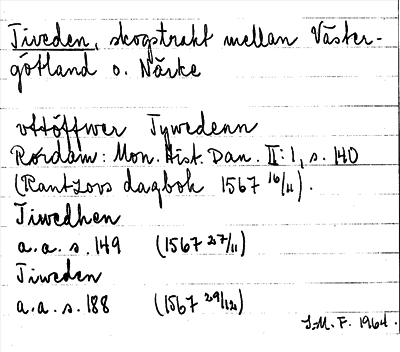 Tiveden, skogstrakt mellan Väster-
götland o. Närke
vttöffwer Tywedenn
Rørdam: Mon. Hist. Dan. II: 1, s. 140
(Rantzovs dagbok 1567 16/11).
Tiwedhen
a.a. s. 149 (1567 27/11)
Tiweden
a.a. s. 188 (1567 29/12)
J.M.F. 1964.